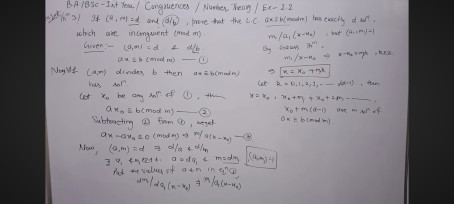 BA/BSc-1st Year / Congruences / Number Theory / Ex-2.2
If (a,m)=d and d/b, prove that the L.C. ax≡b(mod m) has exactly d solⁿ.
which are incongruent (mod m)
Given - (a,m)=d & d/b
ax≡b(mod m) — ①
(a,m) divides b then ax≡b(mod m)
has solⁿ
Let x₀ be any solⁿ of ①, then
ax₀≡b(mod m) — ②
Subtracting ② from ①, we get
ax-ax₀≡0 (mod m) ⇒ m/a(x-x₀) — ③
Now, (a,m)=d ⇒ d/a & d/m
∃ a₁ & m₁ s.t. a=da₁ & m=dm₁
Put the values of a & m in eqⁿ ③
dm₁/da₁(x-x₀) ⇒ m₁/a₁(x-x₀)
(a₁,m₁)=1
m₁/a₁(x-x₀), but (a₁,m₁)=1
By Gauss thᵐ,
m₁/x-x₀ ⇒ x-x₀=m₁k, k∈Z
⇒ x=x₀+m₁k
Let k=0,1,2,3,--- (d-1), then
x=x₀, x₀+m₁, x₀+2m₁ ------,
x₀+m₁(d-1) are solⁿ of
ax≡b(mod m)